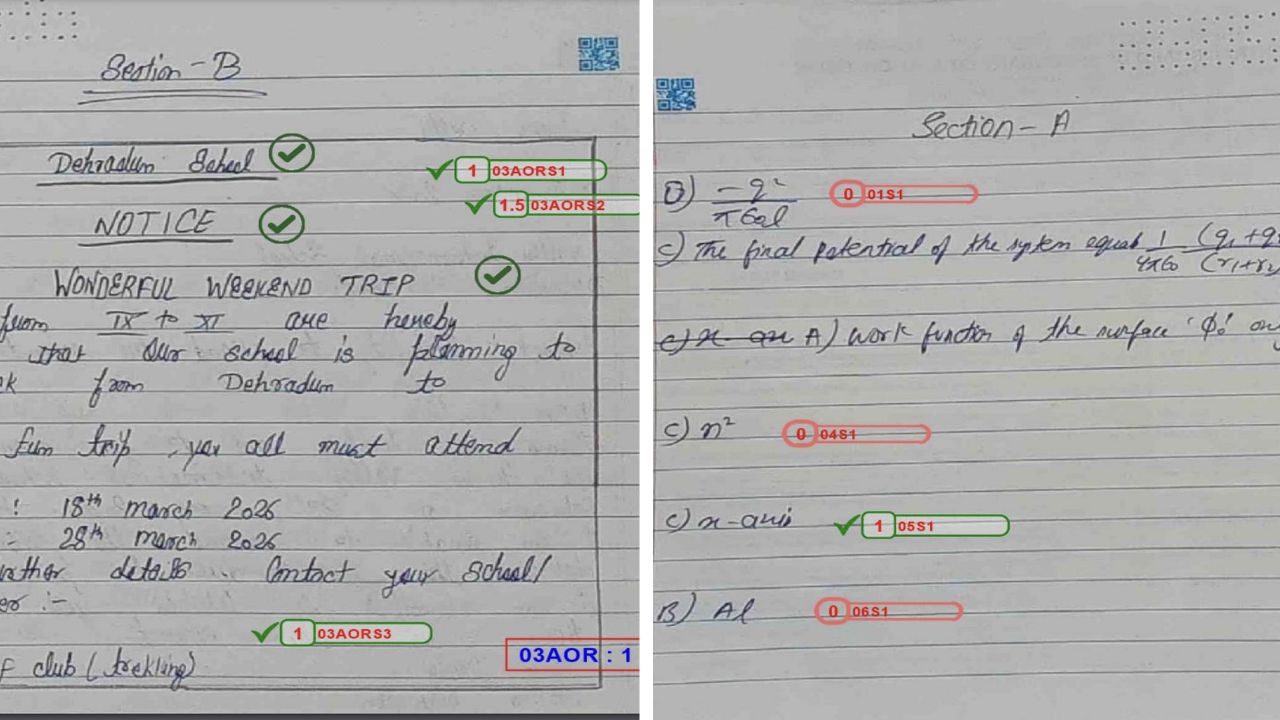 Section - B
Dehradun School
1 03AORS1
1.5 03AORS2
NOTICE
WONDERFUL WEEKEND TRIP
from IX to XI are hereby
that Our school is planning to
from Dehradun to
fun trip, you all must attend
: 18th march 2026
:- 28th march 2026
details Contact your School/
:-
1 03AORS3
03AOR : 1
club (trekking)
Section - A
D) -q² / πϵ₀l
0 01S1
C) The final potential of the system equal 1/4πϵ₀ (q₁+q / (r₁+r₂
A) Work function of the surface 'ϕ₀'
C) n²
0 04S1
C) x-axis
1 05S1
B) Al
0 06S1